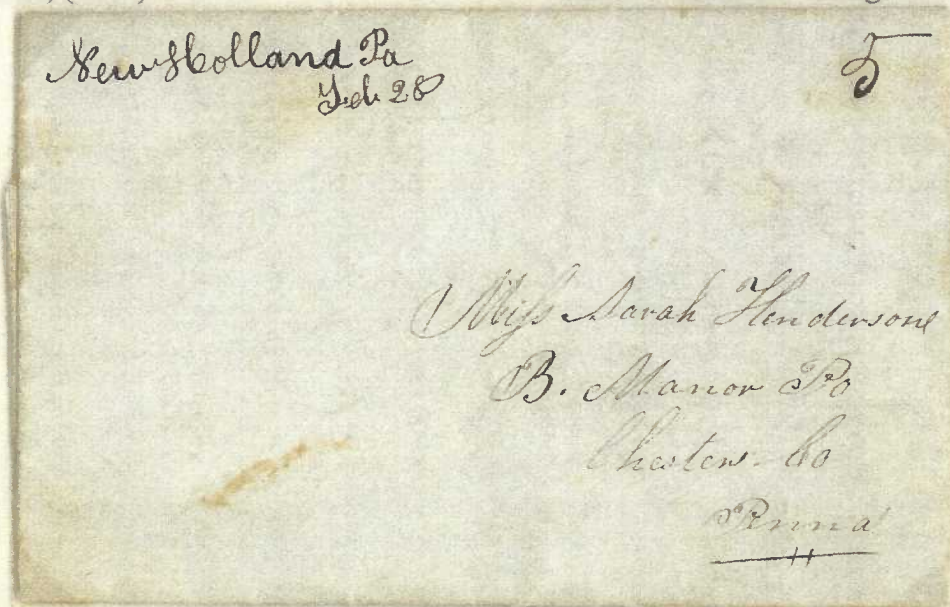 New Holland Pa
Feb 28
5
Miss Sarah Hendersone
B. Manor Po
Chester Co
Penna